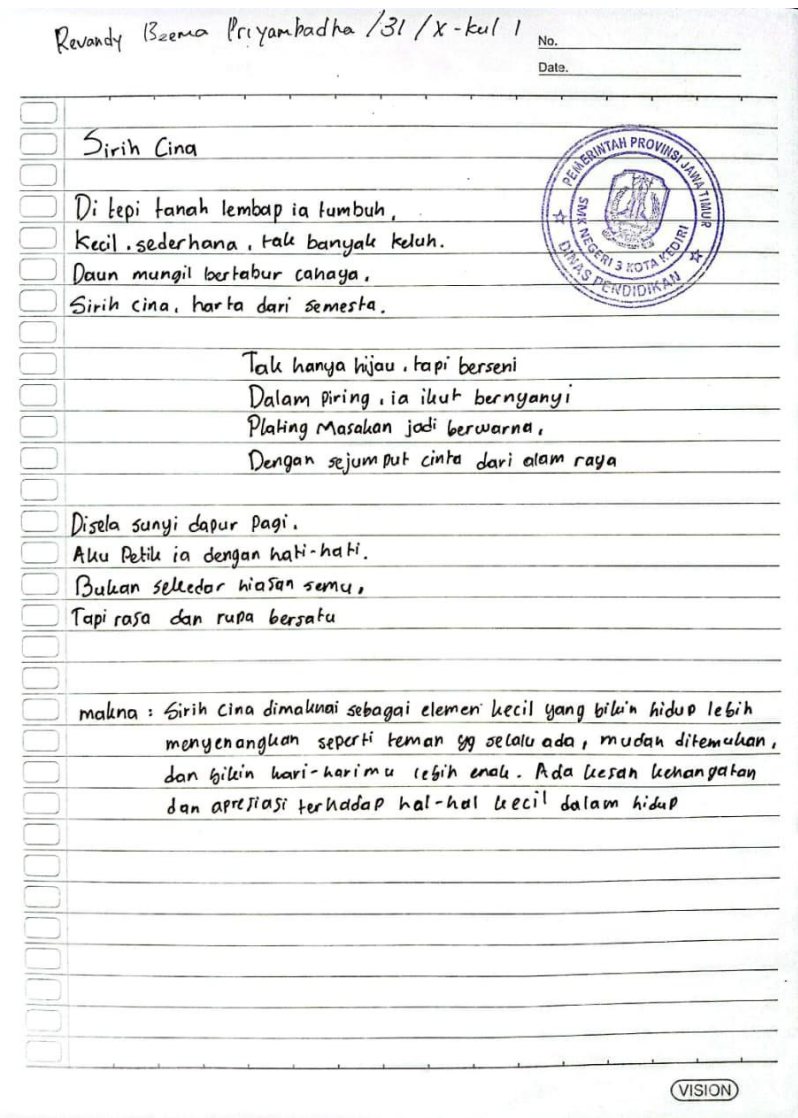 Revandy Beema Priyambadha /31/X-kul 1
No.
Date.
Sirih Cina
PEMERINTAH PROVINSI JAWA TIMUR
SMK NEGERI 3 KOTA KEDIRI
DINAS PENDIDIKAN
Di tepi tanah lembap ia tumbuh,
Kecil, sederhana, tak banyak keluh.
Daun mungil bertabur cahaya,
Sirih cina, harta dari semesta.
Tak hanya hijau, tapi berseni
Dalam piring, ia ikut bernyanyi
Plating Masakan jadi berwarna,
Dengan sejumput cinta dari alam raya
Disela sunyi dapur Pagi,
Aku Petik ia dengan hati-hati.
Bukan sekedar hiasan semu,
Tapi rasa dan rupa bersatu
makna : Sirih Cina dimaknai sebagai elemen kecil yang bikin hidup lebih
menyenangkan seperti teman yg selalu ada, mudah ditemukan,
dan bikin hari-harimu lebih enak. Ada kesan kehangatan
dan apresiasi terhadap hal-hal kecil dalam hidup
VISION